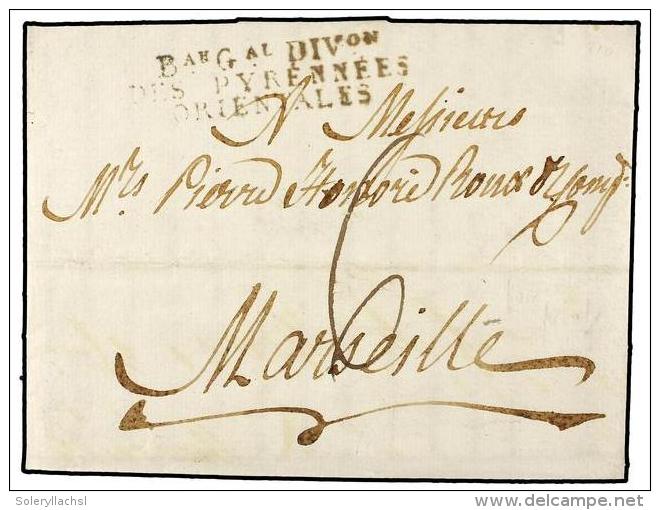 Bau Gal DIVon
DES PYRÉNNÉES
ORIENTALES
A Messieurs
Mrs Pierre Honoré Roux & Compe
6
Marseille
Soleryllachsl
delcampe.net